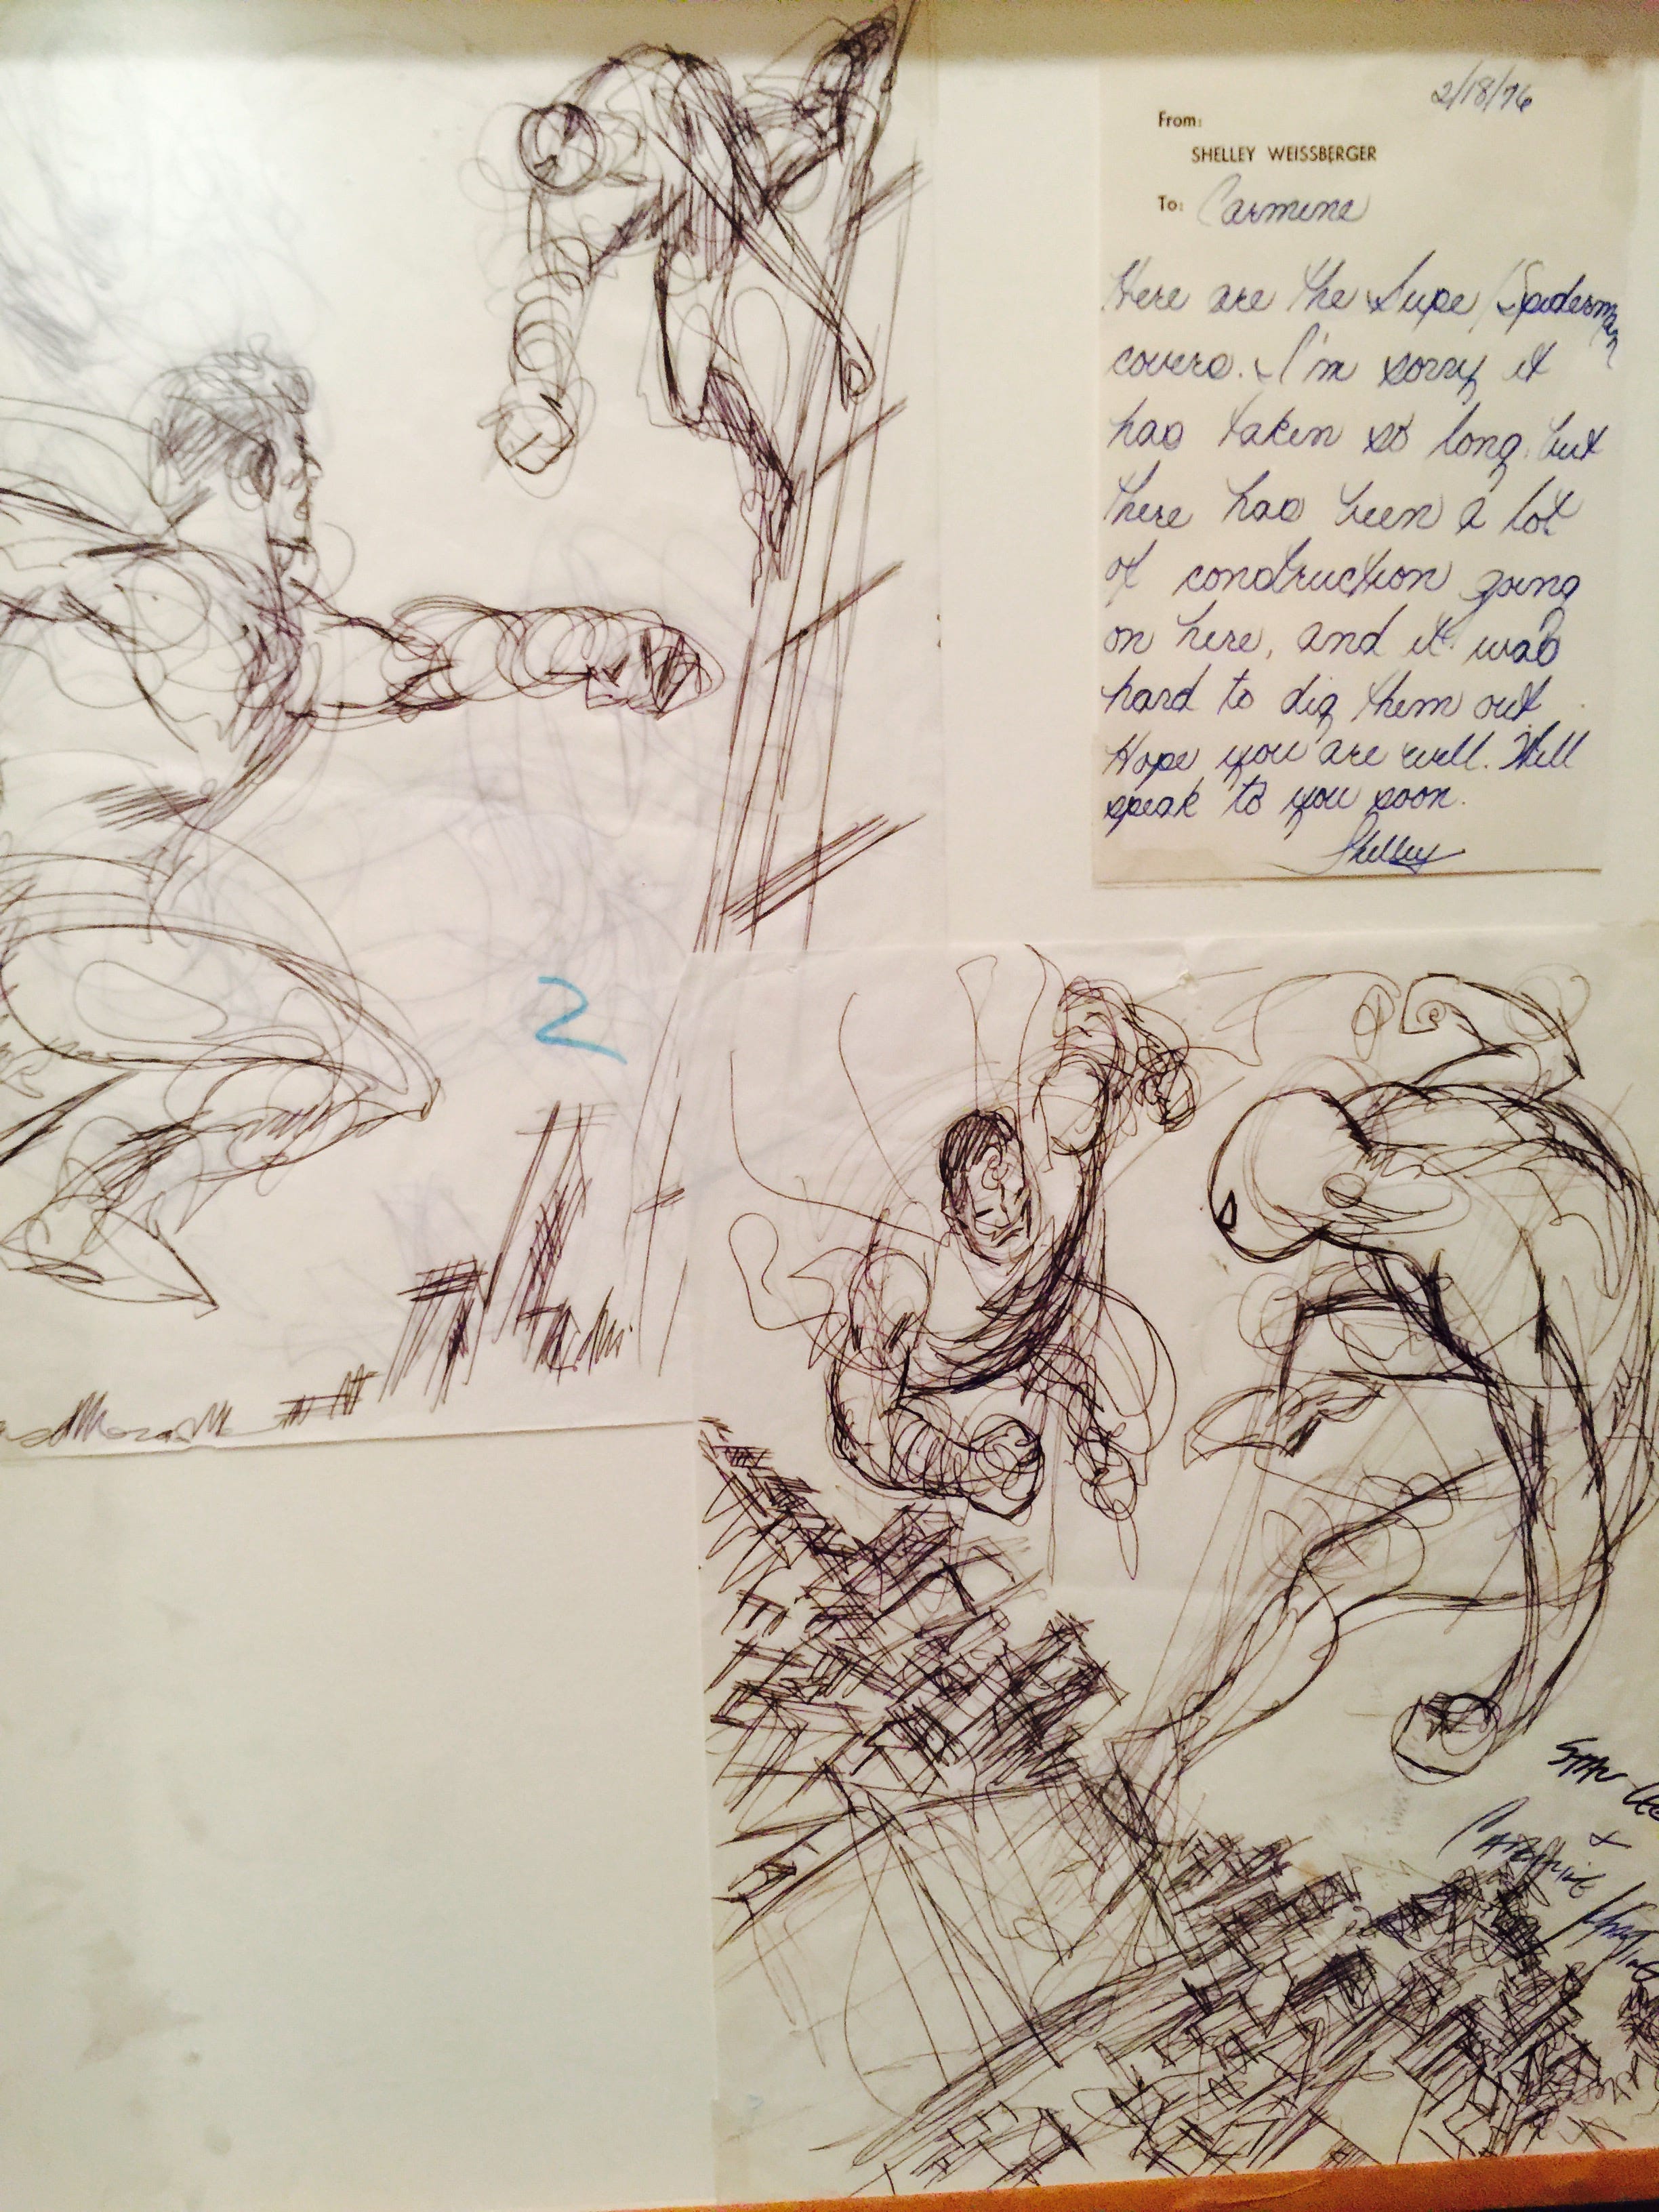 2/18/76
From:
SHELLEY WEISSBERGER
To: Carmine
Here are the Supe/Spiderman
covers. I'm sorry it
has taken so long, but
there has been a lot
of construction going
on here, and it was
hard to dig them out.
Hope you are well. Will
speak to you soon.
Shelley
2
STAN LEE
+
CARMINE